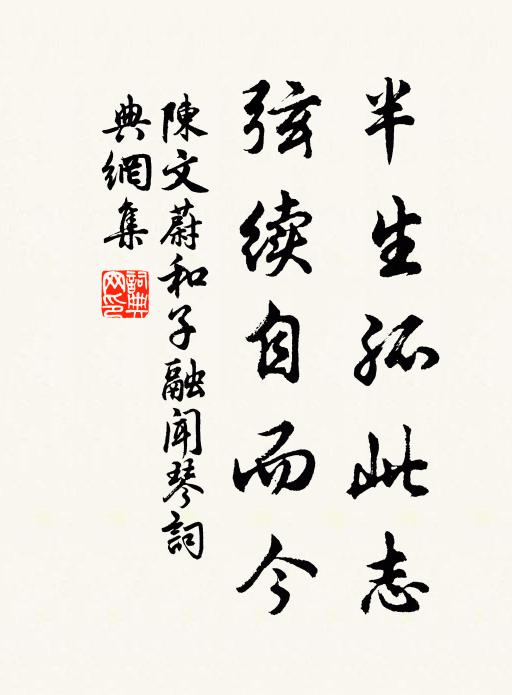 半生孤此志
弦续自而今
陳文蔚和子融闻琴詞
典網集
詞典网印